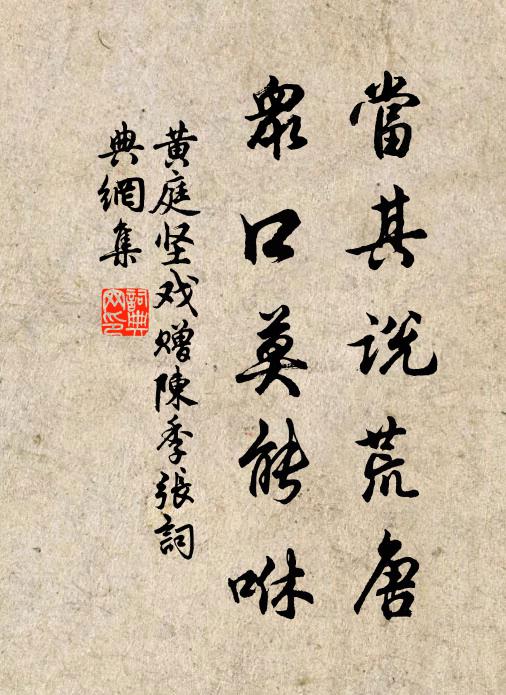 當其說荒唐
衆口莫能咻
黄庭坚戏赠陳季張詞
典網集
詞典
网印